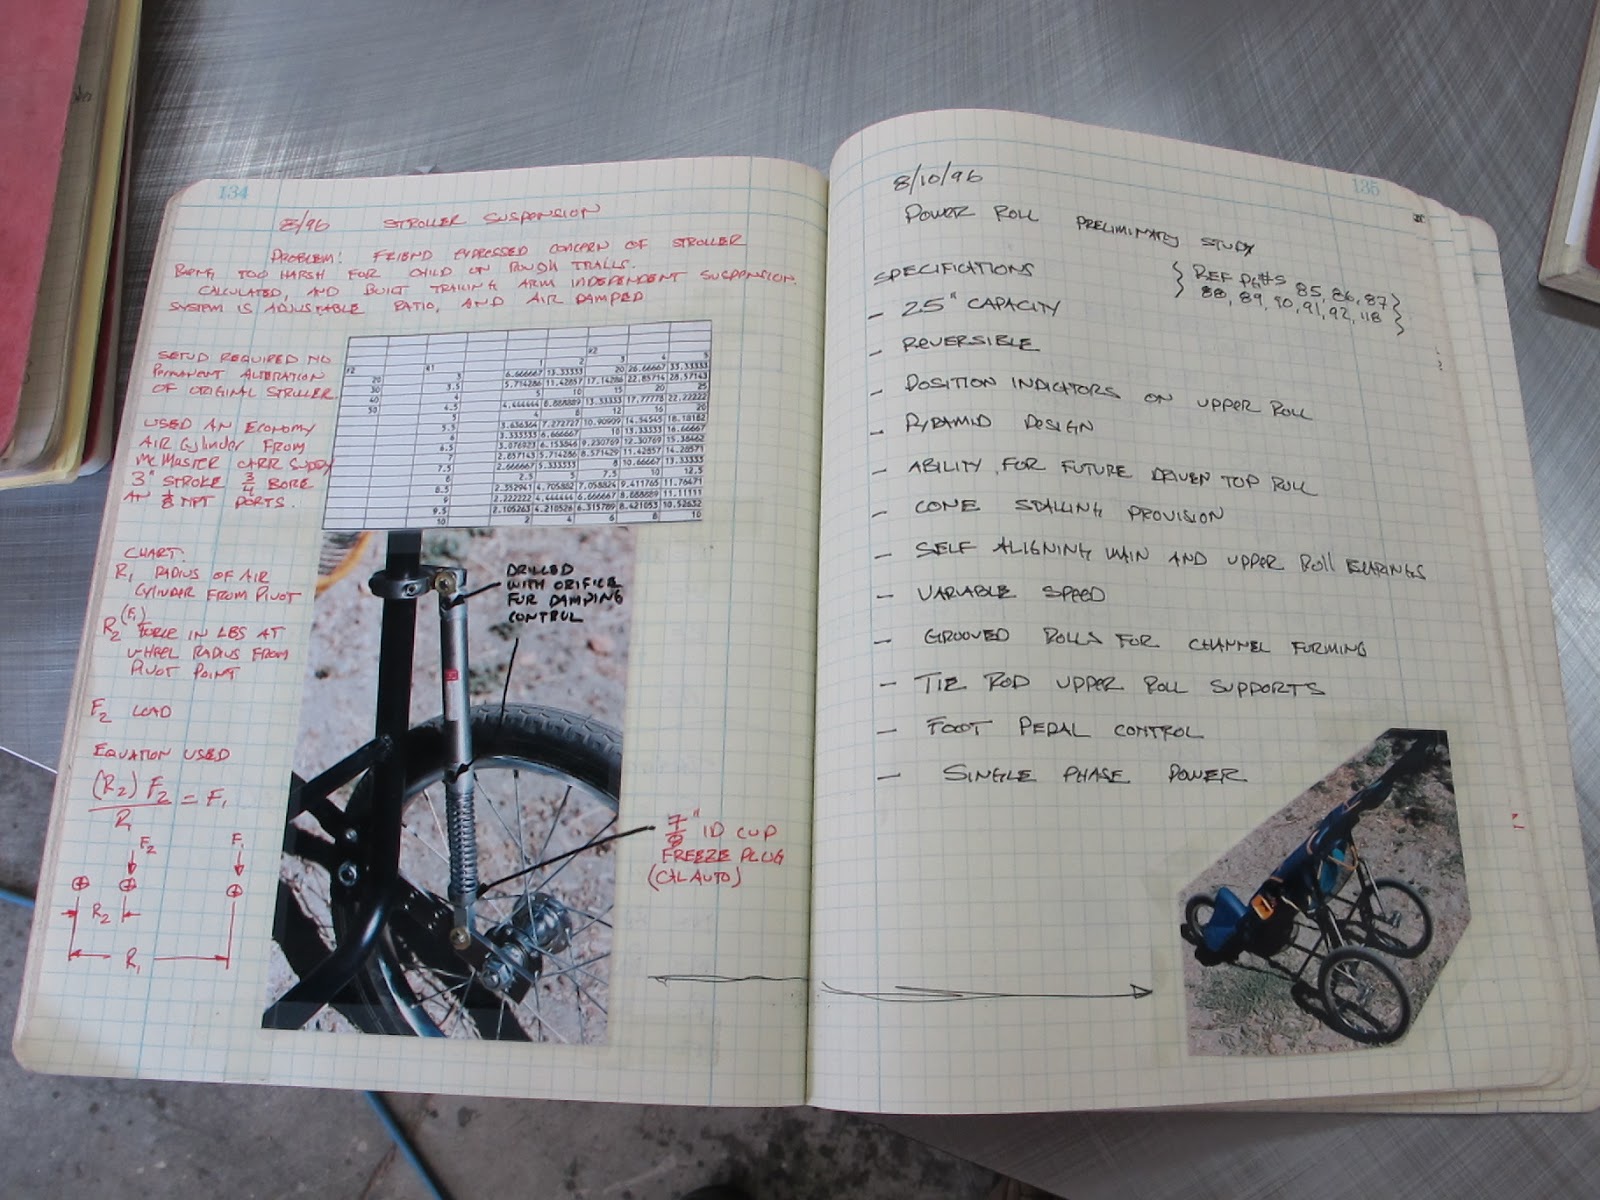 134
8/96 STROLLER SUSPENSION
PROBLEM: FRIEND EXPRESSED CONCERN OF STROLLER
BEING TOO HARSH FOR CHILD ON ROUGH TRAILS.
CALCULATED, AND BUILT TRAILING ARM INDEPENDENT SUSPENSION.
SYSTEM IS ADJUSTABLE RATIO, AND AIR DAMPED
SETUP REQUIRED NO
PERMANENT ALTERATION
OF ORIGINAL STROLLER.
USED AN ECONOMY
AIR CYLINDER FROM
MCMASTER CARR SUPPLY
3" STROKE 3/4 BORE
AN 1/8 NPT PORTS.
R2
1 2 3 4 5
F2 R1
20 3 6.666667 13.33333 20 26.66667 33.33333
30 3.5 5.714286 11.42857 17.14286 22.85714 28.57143
40 4 5 10 15 20 25
50 4.5 4.444444 8.888889 13.33333 17.77778 22.22222
5 4 8 12 16 20
5.5 3.636364 7.272727 10.90909 14.54545 18.18182
6 3.333333 6.666667 10 13.33333 16.66667
6.5 3.076923 6.153846 9.230769 12.30769 15.38462
7 2.857143 5.714286 8.571429 11.42857 14.28571
7.5 2.666667 5.333333 8 10.66667 13.33333
8 2.5 5 7.5 10 12.5
8.5 2.352941 4.705882 7.058824 9.411765 11.76471
9 2.222222 4.444444 6.666667 8.888889 11.11111
9.5 2.105263 4.210526 6.315789 8.421053 10.52632
10 2 4 6 8 10
CHART:
R1 RADIUS OF AIR
CYLINDER FROM PIVOT
R2 (F1) FORCE IN LBS AT
WHEEL RADIUS FROM
PIVOT POINT
F2 LOAD
EQUATION USED
(R2) F2 / R1 = F1
F2 F1
R2
R1
DRILLED
WITH ORIFICE
FUR DAMPING
CONTROL
7/8" ID CUP
FREEZE PLUG
(CAL AUTO)
135
8/10/96
POWER ROLL PRELIMINARY STUDY
SPECIFICATIONS
{ REF pg#s 85, 86, 87 }
{ 88, 89, 90, 91, 92, 118 }
- 25" CAPACITY
- REVERSIBLE
- POSITION INDICATORS ON UPPER ROLL
- PYRAMID DESIGN
- ABILITY FOR FUTURE DRIVEN TOP ROLL
- CONE STALLING PROVISION
- SELF ALIGNING MAIN AND UPPER ROLL BEARINGS
- VARIABLE SPEED
- GROOVED ROLLS FOR CHANNEL FURMING
- TIE ROD UPPER ROLL SUPPORTS
- FOOT PEDAL CONTROL
- SINGLE PHASE POWER